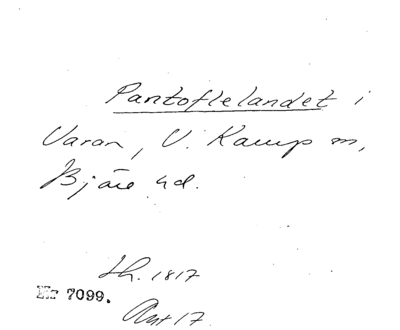 Pantoflelandet i
Varan, V. Karup m,
Bjäre hd.
Lh. 1817
Nr 7099.
Ant 17.